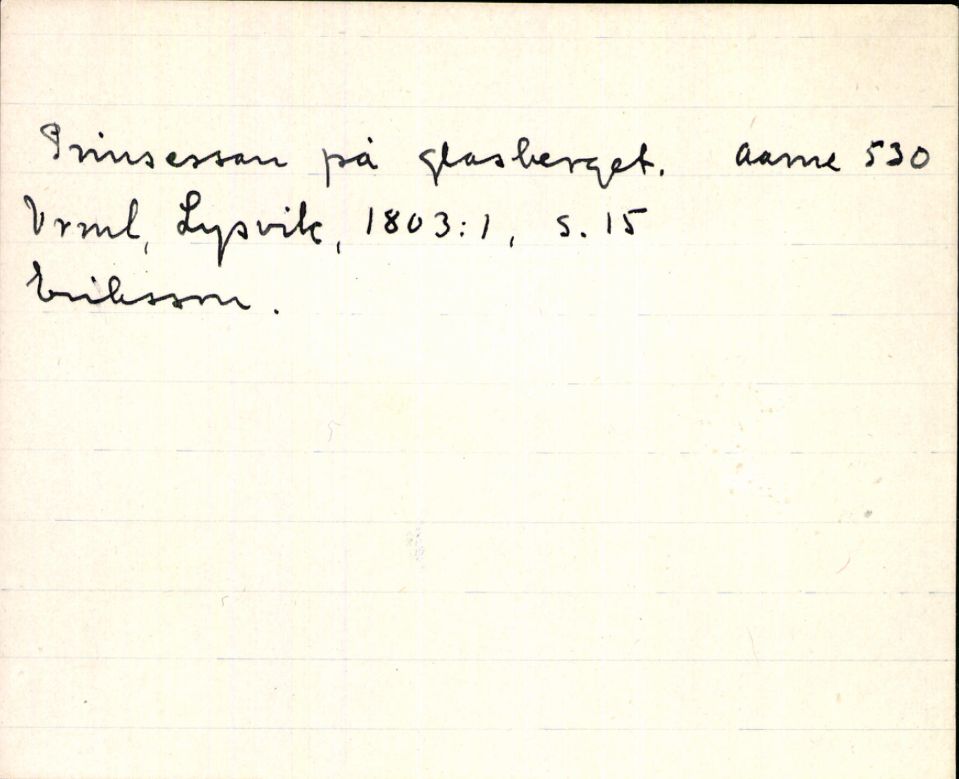 Prinsessan på glasberget. Aarne 530
Vrml, Lysvik, 1803:1, s. 15
Eriksson.